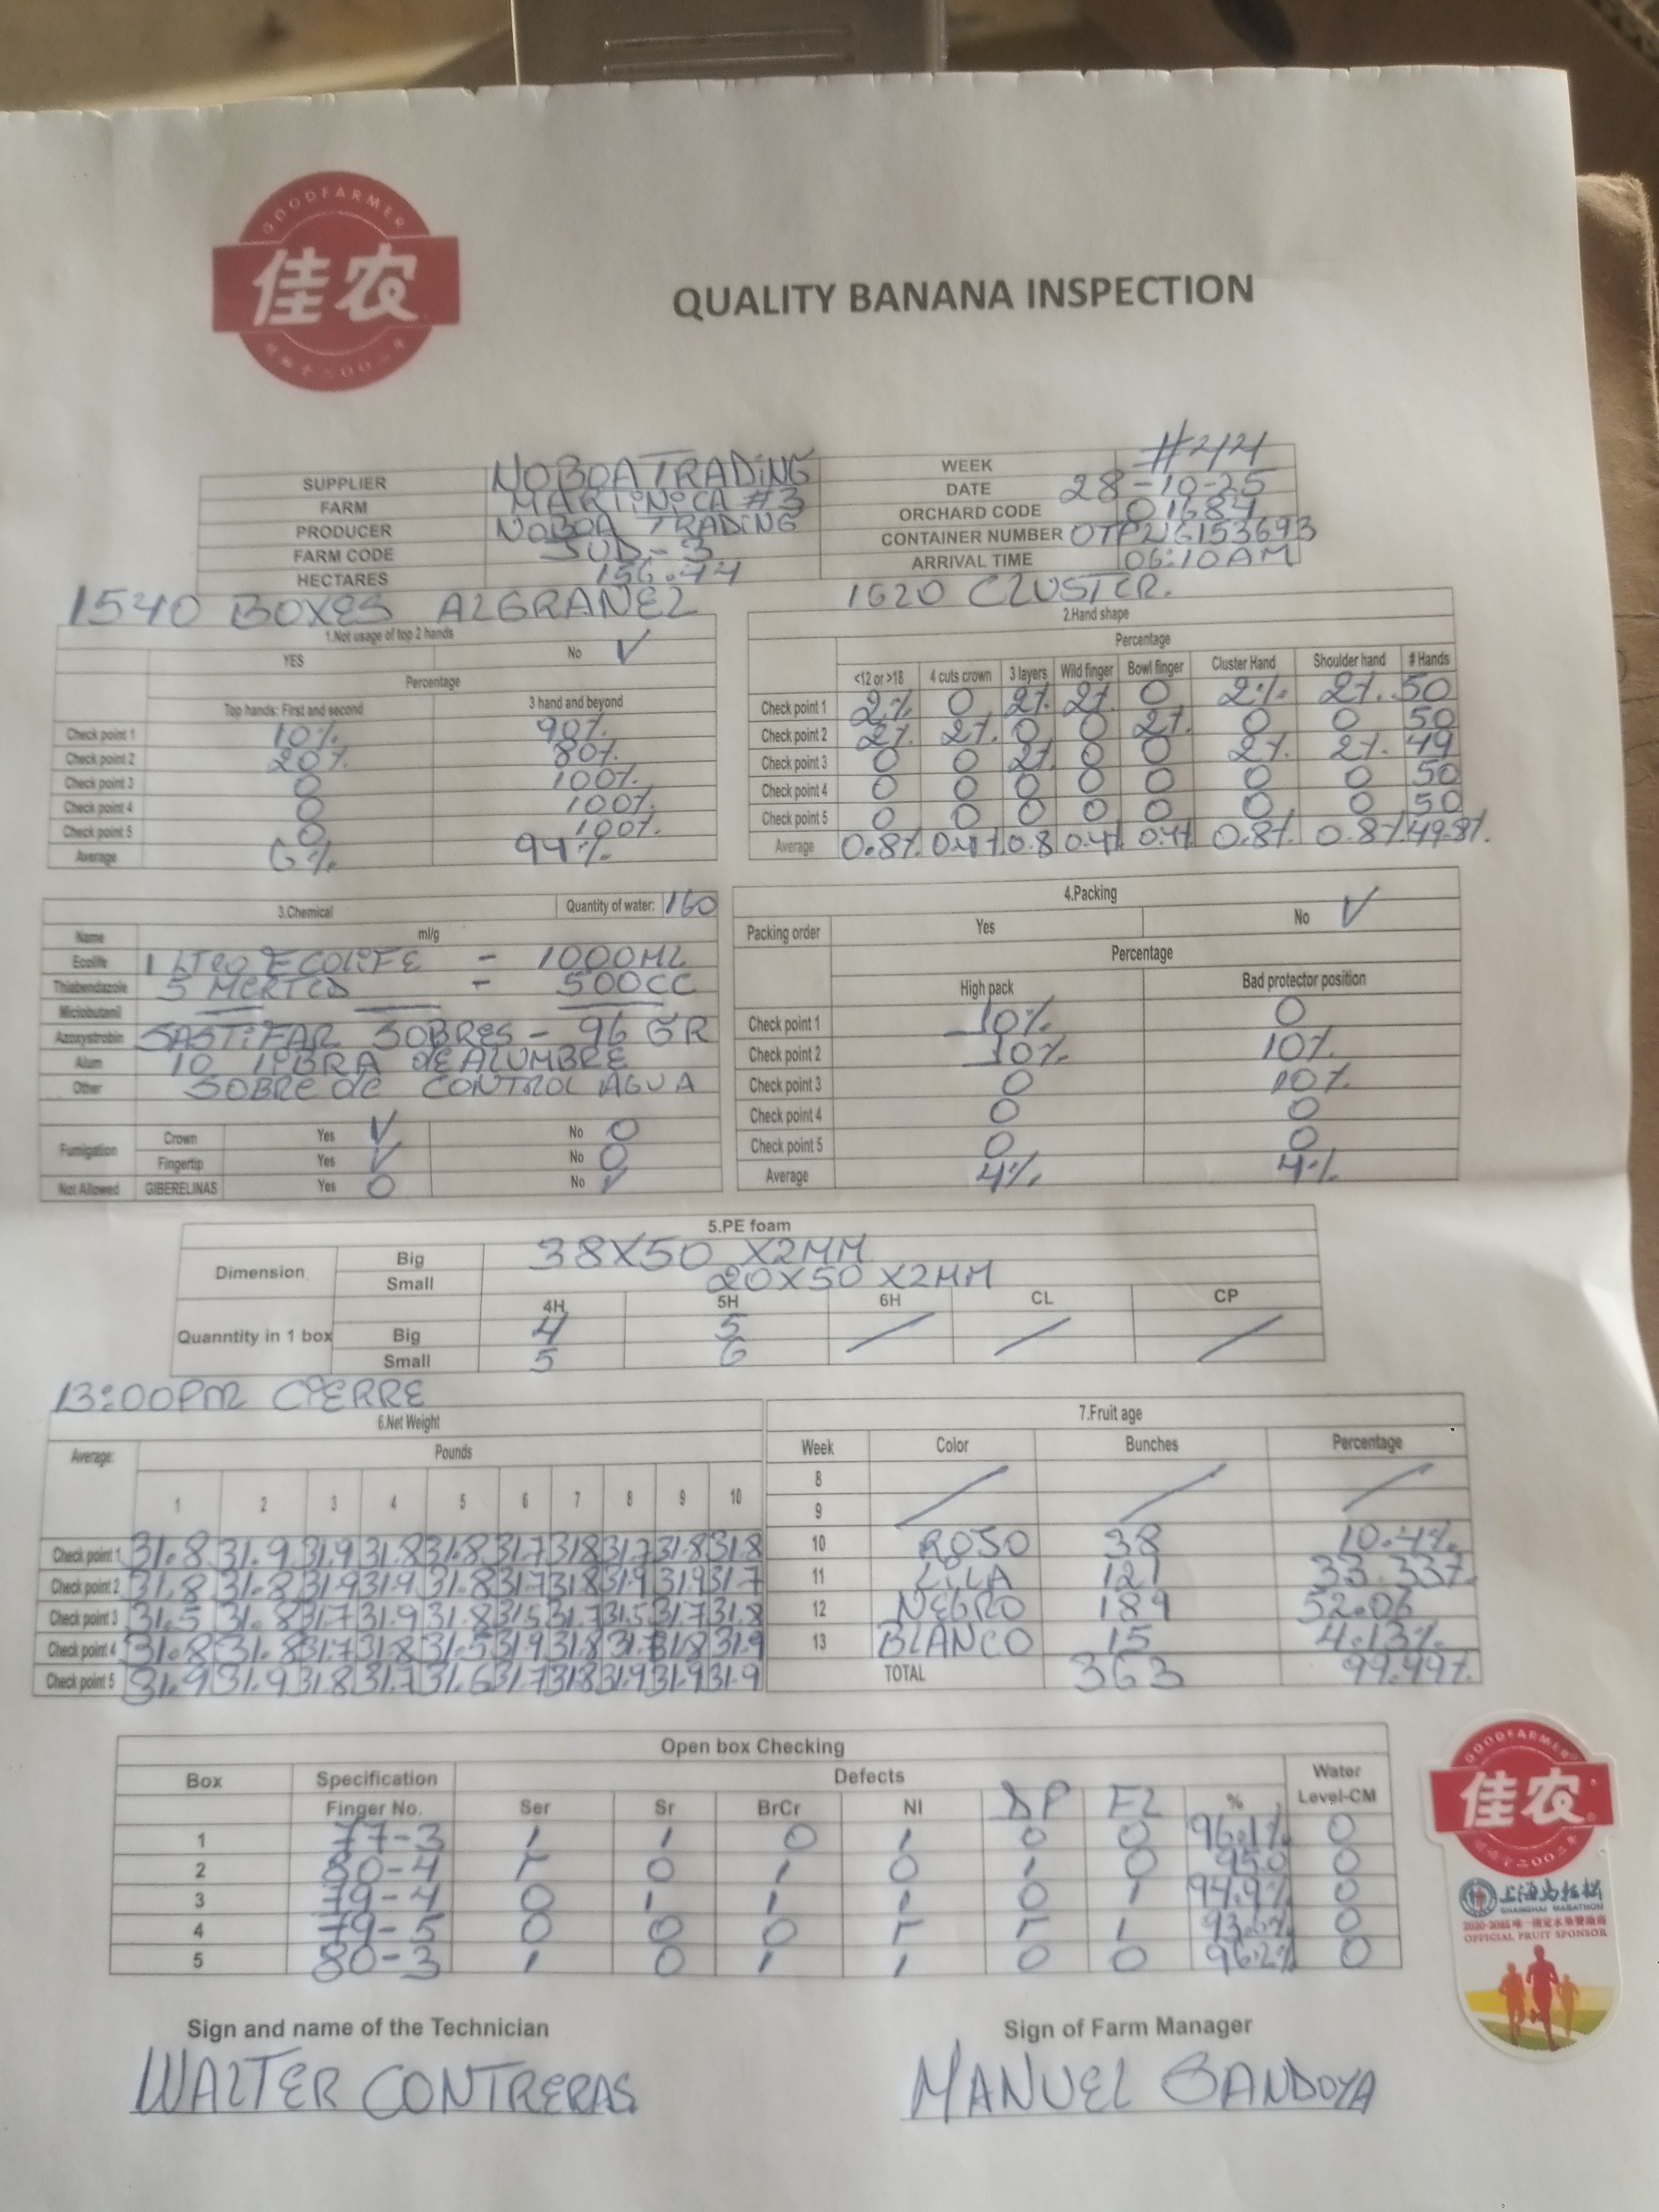 GOODFARMER
佳农
QUALITY BANANA INSPECTION
SUPPLIER NOBOA TRADING
FARM MARTINICA #3
PRODUCER NOBOA TRADING
FARM CODE SUD-3
HECTARES 156.44
WEEK #44
DATE 28-10-25
ORCHARD CODE 01684
CONTAINER NUMBER
ARRIVAL TIME 06:10AM
1540 BOXES ALGRANEL
1620 CLUSTER.
1.Not usage of top 2 hands
YES No ✓
Percentage
Top hands: First and second 3 hand and beyond
Check point 1 10% 90%
Check point 2 20% 80%
Check point 3 0 100%
Check point 4 0 100%
Check point 5 0 100%
Average 6% 94%
2.Hand shape
Percentage
<12 or >18 4 cuts crown 3 layers Wild finger Bowl finger Cluster Hand Shoulder hand # Hands
Check point 1 2% 0 2% 2% 0 2% 2% 50
Check point 2 2% 2% 0 0 2% 0 0 50
Check point 3 0 0 2% 0 0 2% 2% 49
Check point 4 0 0 0 0 0 0 0 50
Check point 5 0 0 0 0 0 0 0 50
Average 0.8% 0.4% 0.8 0.4% 0.4% 0.8% 0.8% 49.8%
3.Chemical Quantity of water: 160
Name ml/g
Ecolife 1 LTRO ECOLIFE - 1000ML
Thiabendazole 5 MERTED - 500CC
Miclobutanil
Azoxystrobin SASTIFAR SOBRES - 96 GR
Alum 10 LIBRA DE ALUMBRE
Other SOBRE de CONTROL AGUA
Fumigation
Crown Yes ✓ No 0
Fingertip Yes ✓ No 0
Not Allowed GIBERELINAS Yes 0 No ✓
4.Packing
Packing order Yes No ✓
Percentage
High pack Bad protector position
Check point 1 10% 0
Check point 2 10% 10%
Check point 3 0 10%
Check point 4 0 0
Check point 5 0 0
Average 4% 4%
5.PE foam
Dimension
Big 38X50 X2MM
Small 20X50 X2MM
4H 5H 6H CL CP
Quanntity in 1 box
Big 4 5
Small 5 6
13:00PM CIERRE
6.Net Weight
Average: Pounds
1 2 3 4 5 6 7 8 9 10
Check point 1 31.8 31.9 31.9 31.8 31.8 31.7 31.8 31.7 31.8 31.8
Check point 2 31.8 31.8 31.9 31.9 31.8 31.7 31.8 31.9 31.9 31.7
Check point 3 31.5 31.8 31.7 31.9 31.8 31.5 31.7 31.5 31.7 31.8
Check point 4 31.8 31.8 31.7 31.8 31.5 31.9 31.8 31.8 31.9
Check point 5 31.9 31.9 31.8 31.7 31.6 31.7 31.8 31.9 31.9 31.9
7.Fruit age
Week Color Bunches Percentage
8
9
10 ROSO 38 10.4%
11 LILA 121 33.33%
12 NEGRO 189 52.06
13 BLANCO 15 4.13%
TOTAL 363 99.99%
Open box Checking
Box Specification Defects Water
Finger No. Ser Sr BrCr NI DP FL % Level-CM
1 77-3 1 1 0 1 0 0 96.1% 0
2 80-4 0 1 0 1 0 95.0 0
3 79-4 0 1 1 1 0 1 94.9% 0
4 79-5 0 0 0 1 93.6% 0
5 80-3 1 0 1 1 0 0 96.2% 0
Sign and name of the Technician
WALTER CONTRERAS
Sign of Farm Manager
MANUEL SANDOYA
GOODFARMER
佳农
上海马拉松
SHANGHAI MARATHON
OFFICIAL FRUIT SPONSOR